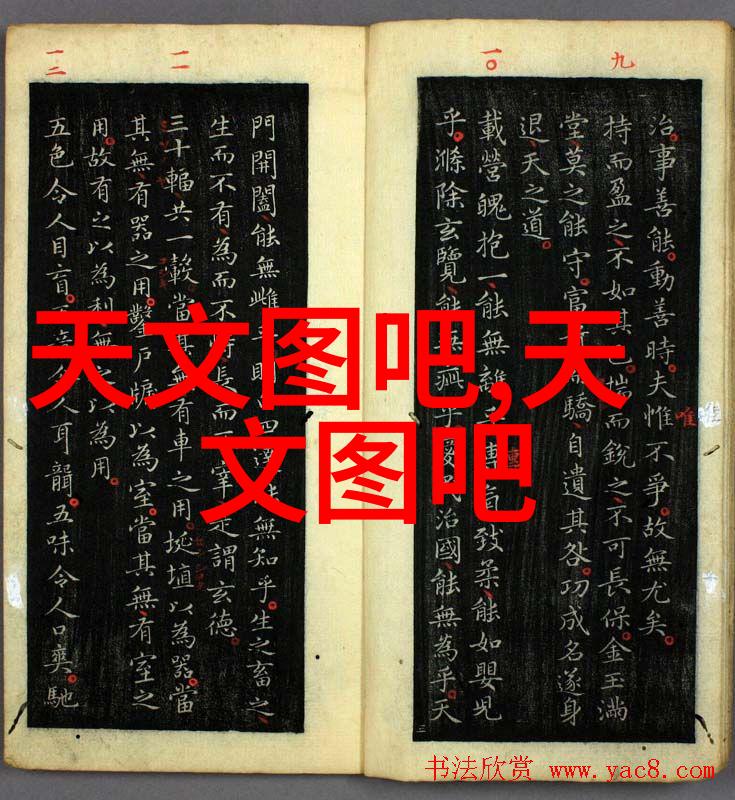 九
一〇
一一
一二
治。事善能。動善時。夫惟不爭。故無尤矣。
唯
持而盈之、不如其已。揣而銳之、不可長保。金玉滿
堂、莫之能守。富驕、自遺其咎。功成名遂身
退、天之道。
載營魄抱一、能無離致柔、能如嬰兒
乎。滌除玄覽、能無疵乎民治國、能無為乎。天
門開闔、能無雌無知乎。生之畜之、
生而不有、為而不長而是謂玄德。
三十輻、共一轂、當其無、有車之用。挻埴以為器。當
其無、有器之用。鑿戶牖以為室。當其無、有室之
用。故有之以為利無以為用。
五色令人目盲。人耳聾。五味令人口爽。馳
天文图吧,天
文图吧
书法欣赏 www.yac8.com